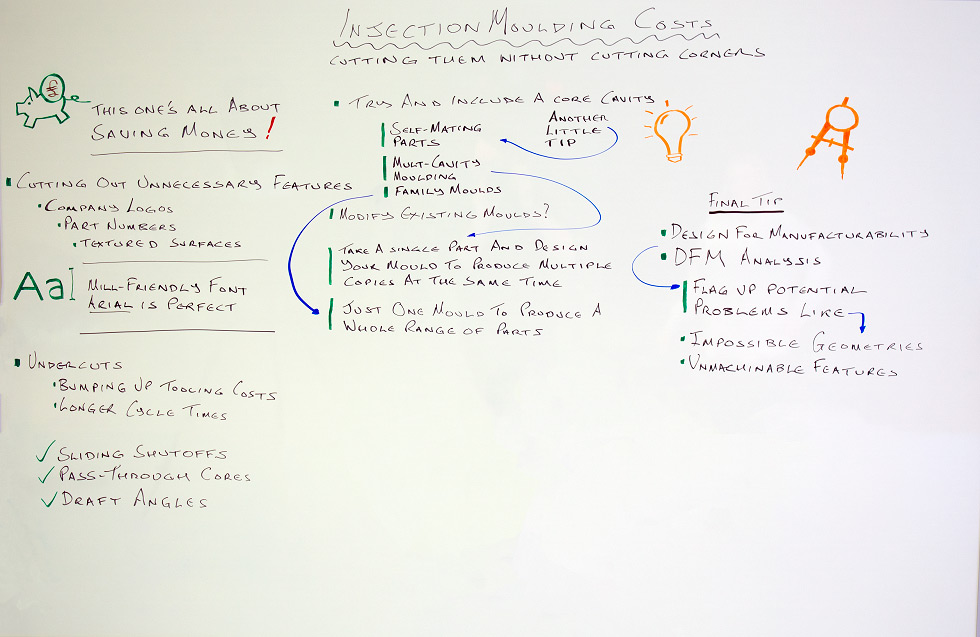 INJECTION MOULDING COSTS
CUTTING THEM WITHOUT CUTTING CORNERS
£
THIS ONE'S ALL ABOUT
SAVING MONEY!
▪ CUTTING OUT UNNECESSARY FEATURES
• COMPANY LOGOS
• PART NUMBERS
• TEXTURED SURFACES
Aa
MILL-FRIENDLY FONT
ARIAL IS PERFECT
▪ UNDERCUTS
• BUMPING UP TOOLING COSTS
• LONGER CYCLE TIMES
✓ SLIDING SHUTOFFS
✓ PASS-THROUGH CORES
✓ DRAFT ANGLES
▪ TRY AND INCLUDE A CORE CAVITY
SELF-MATING
PARTS
ANOTHER
LITTLE
TIP
MULT-CAVITY
MOULDING
FAMILY MOULDS
MODIFY EXISTING MOULDS?
TAKE A SINGLE PART AND DESIGN
YOUR MOULD TO PRODUCE MULTIPLE
COPIES AT THE SAME TIME
JUST ONE MOULD TO PRODUCE A
WHOLE RANGE OF PARTS
FINAL TIP
• DESIGN FOR MANUFACTURABILITY
• DFM ANALYSIS
FLAG UP POTENTIAL
PROBLEMS LIKE
• IMPOSSIBLE GEOMETRIES
• UNMACHINABLE FEATURES